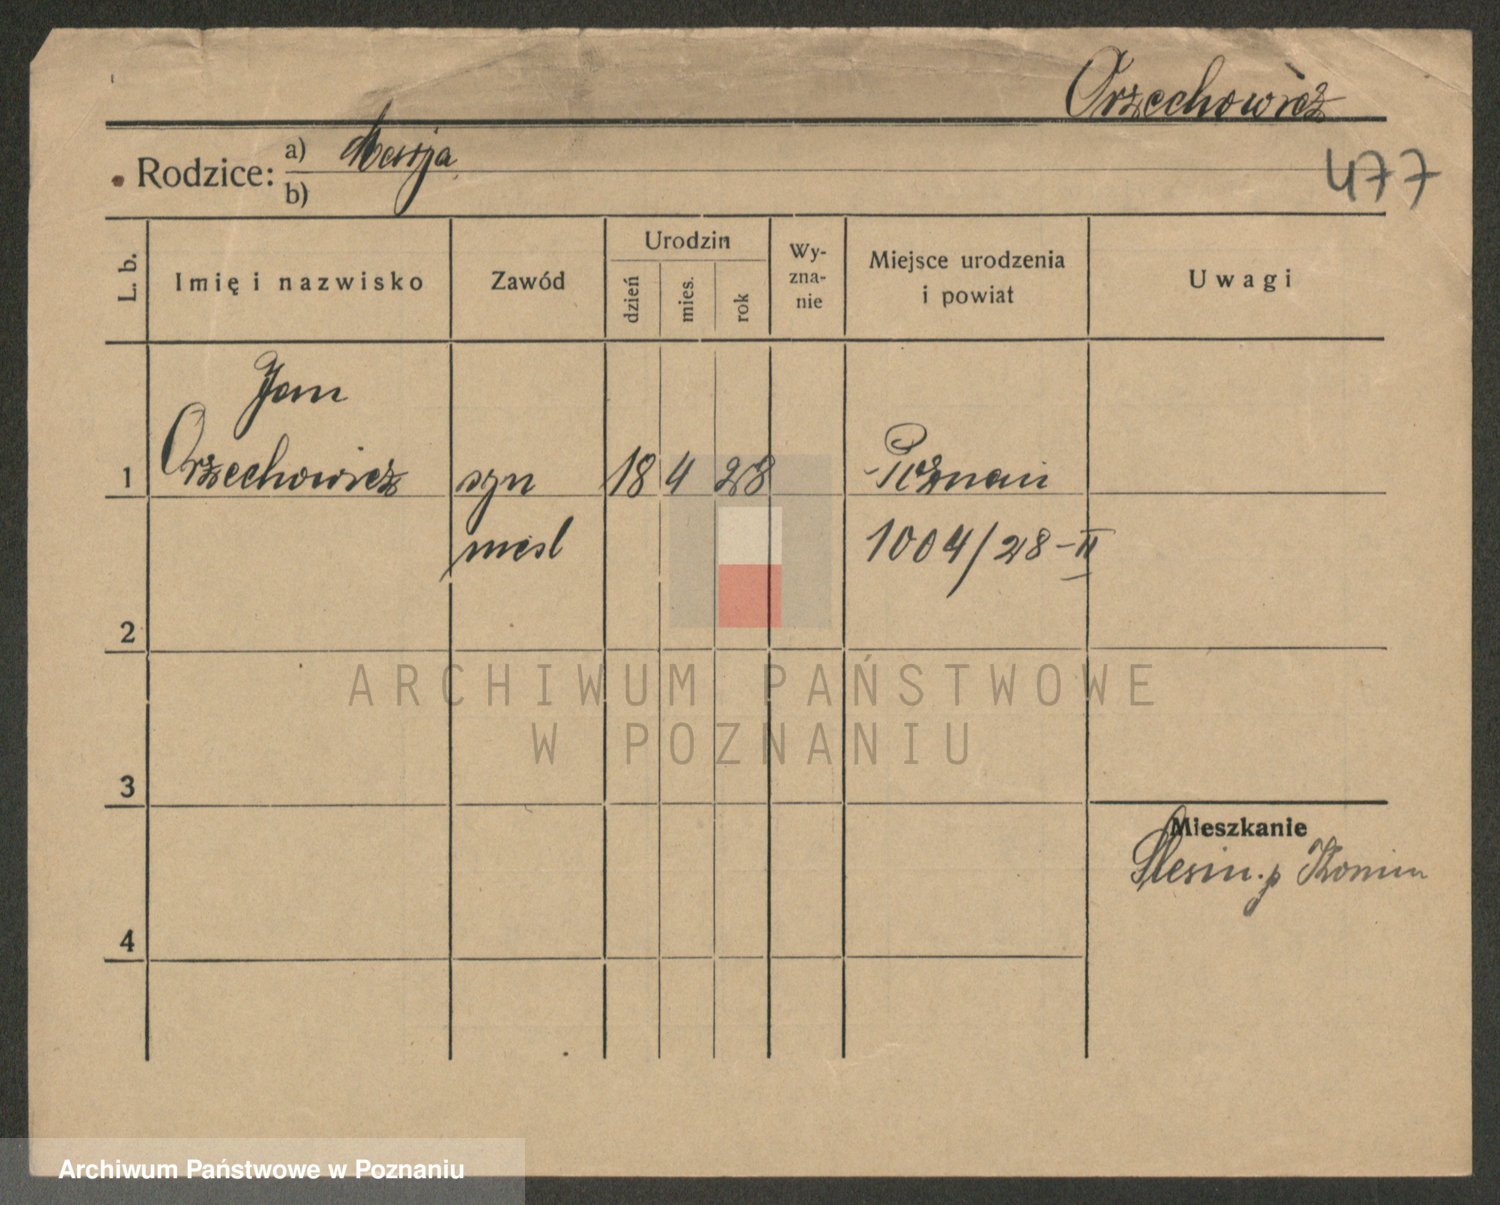 Orzechowicz
477
Rodzice: a) Marja
b)
L. b.
Imię i nazwisko
Zawód
Urodzin
dzień
mies.
rok
Wy-
zna-
nie
Miejsce urodzenia
i powiat
Uwagi
Jan
1 Orzechowicz syn 18 4 28 Poznań
nieśl 1004/28-II
2
3
4
Mieszkanie
Ślesin. p Konin
ARCHIWUM PAŃSTWOWE
W POZNANIU
Archiwum Państwowe w Poznaniu